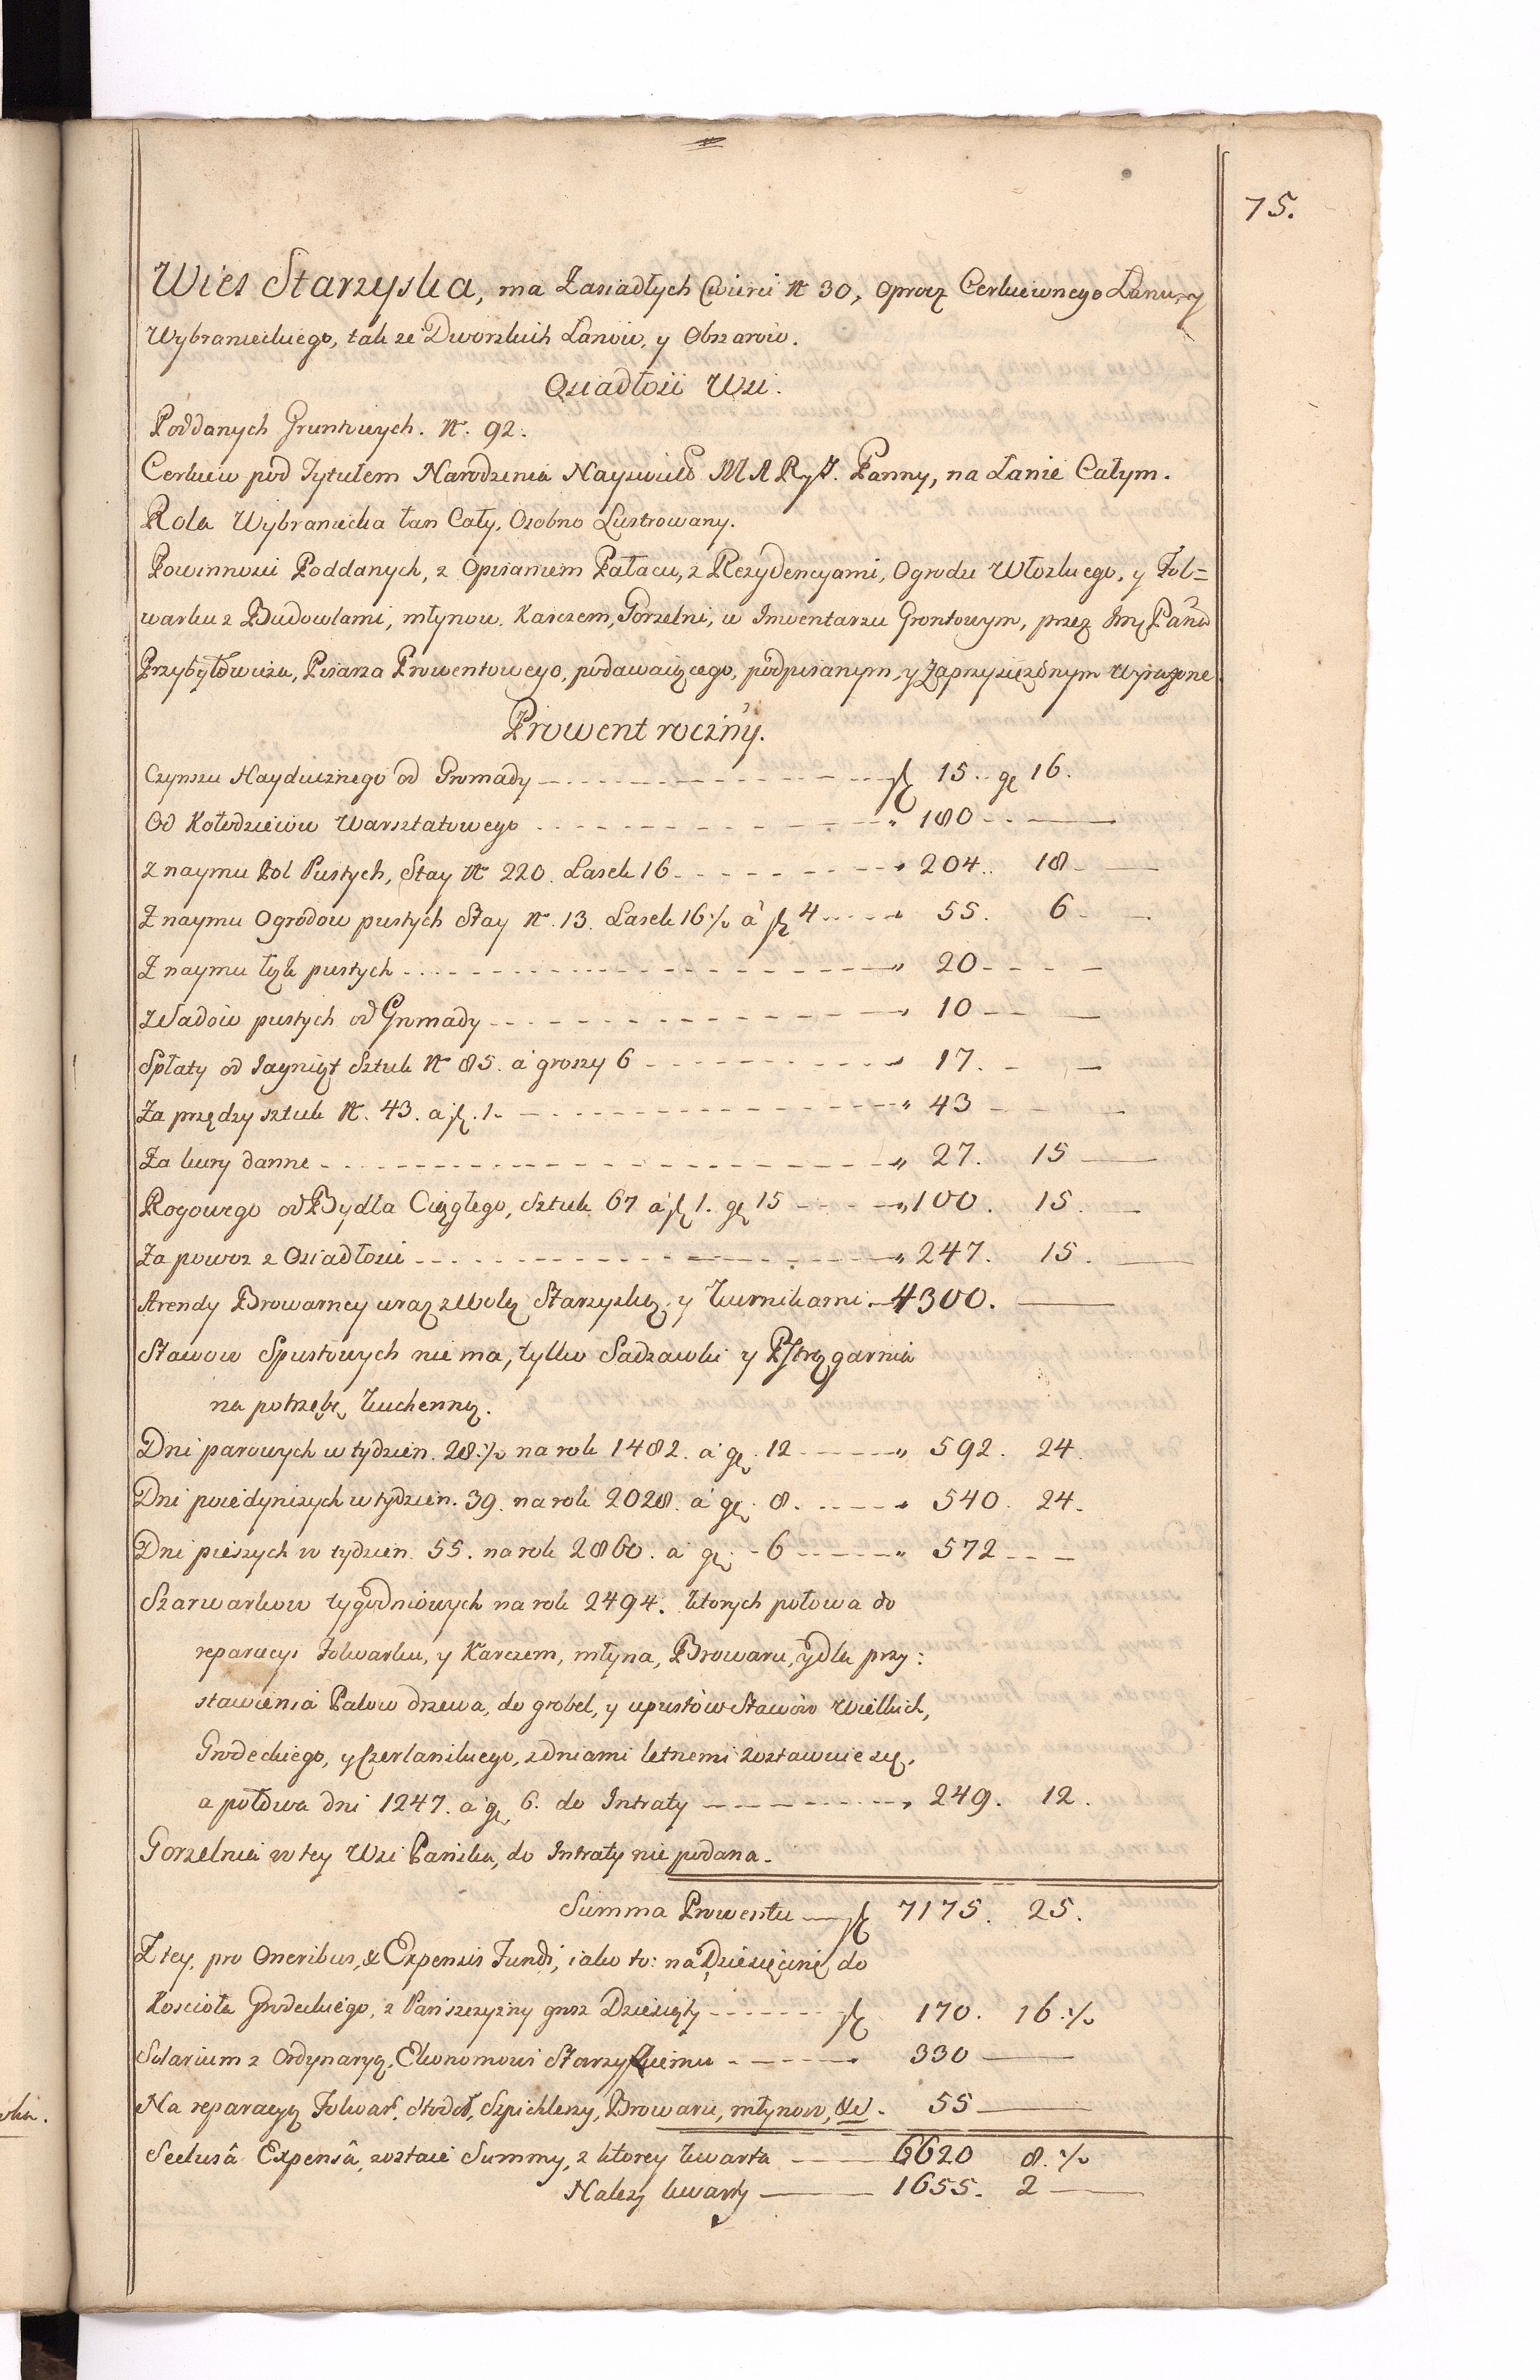 75.
Wieś Starzyska, ma Zasiadłych Cwierci N 30, oprocz Cerkiewnego Łanu, y
Wybranieckiego, tak ze Dworskich Łanow, y Obszarow.
Osiadłości Wsi.
Poddanych Gruntowych. N. 92.
Cerkiew pod Tytułem Narodzenia Nayswięt MARyi. Panny, na Łanie Całym.
Rola Wybraniecka łan Cały, Osobno Lustrowany.
Powinności Poddanych, z Opisaniem Pałacu, z Rezydencyami, Ogrodu Włoskiego, y Fol=
warku z Budowlami, młynow, Karczem, Gorzelni, w Inwentarzu Grontowym, przez Imę Pana
Przybyłowicza, Pisarza Prowentowego, podawaiącego, podpisanym, y zaprzysięzonym wyrazone.
Prowent roczny.
Czynszu Hayducznego od Gromady fl 15. gr 16.
Od Kołodzieiow Warsztatowego 180
Z naymu Rol Pustych, Stay N 220. Lasek 16 204. 18
Z naymu Ogrodow pustych Stay N. 13. Lasek 16 ./. à fl 4 55. 6
Z naymu Łąk pustych 20
z Sadow pustych od Gromady 10
Spłaty od Jagniąt Sztuk N 85. à groszy 6 17.
Za przędzy sztuk N. 43. à fl. 1. 43
Za kury danne 27. 15
Rogowego od Bydła Ciągłego, Sztuk 67 à fl 1. gr 15 100. 15.
Za powoz z Osiadłości 247. 15.
Arendy Browarney wraz z Wolą Starzyską, y Kurnikami 4300.
Stawow Spustowych nie ma, tylko Sadzawki y Pstrągarnia
na potrzebę kuchenną.
Dni parowych w tydzien. 28 ./. na rok 1482. à gr. 12 592. 24
Dni poiedynczych w tydzien. 39. na rok 2028. à gr. 8. 540. 24.
Dni pieszych w tydzien. 55. na rok 2860. à gr. 6 572
Szarwarkow tygodniowych na rok 2494. ktorych połowa do
reparacyi Folwarku, y Karczem, młyna, Browaru, y dla przy:
stawienia Palow drzewa, do grobel, y upustow Stawow Wielkich,
Grodeckiego, y Czerlanskiego, z dniami letnemi zostawuie się,
a połowa dni 1247. à gr 6. do Intraty 249. 12.
Gorzelnia w tey Wsi Pańska, do Intraty nie podana.
Summa Prowentu fl 7175. 25.
Z tey, pro Oneribus, & Expensis Fundi, iako to: na Dziesięcinę do
Koscioła Grodeckiego, z Pańszczyzny grosz Dziesiąty fl 170. 16 ./.
Solarium z Ordynaryą, Ekonomowi Starzyskiemu 330
Na reparacyą Folwar. Stodoł, Szpichlerzy, Browaru, młynow, &c. 55
Seclusâ Expensâ, zostaie Summy, z ktorey kwarta 6620 8. ./.
Nalezy kwarty 1655. 2